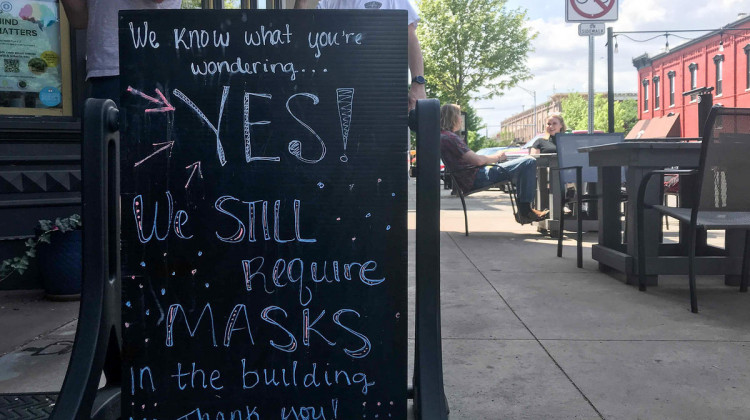 We Know what you're
wondering...
YES!
We STILL
Require
MASKS
In the building
Thank you!